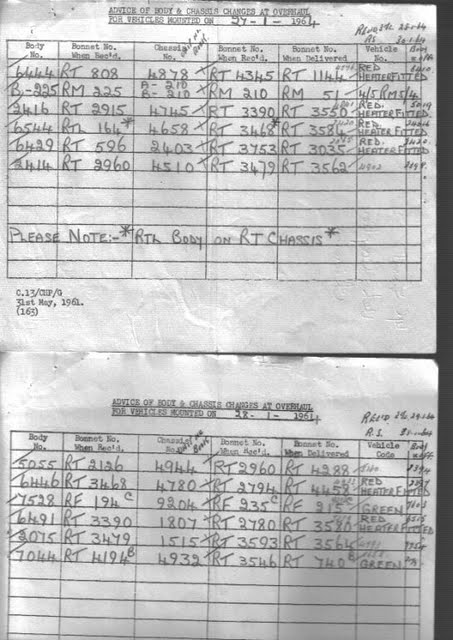 ADVICE OF BODY & CHASSIS CHANGES AT OVERHAUL
FOR VEHICLES MOUNTED ON 27-1-1964
Body No. Bonnet No. When Rec'd. Chassis No. Bonnet No. When Rec'd. Bonnet No. When Delivered Vehicle No. Body
6444 RT 808 4878 RT 4345 RT 1144 RED HEATER FITTED
B-225 RM 225 A-210 B-210 RM 210 RM 51 4/5 RM5/4
2416 RT 2915 4745 RT 3390 RT 3550 RED. HEATER FITTED
6544 RTL 164* 4658 RT 3468* RT 3584 RED. HEATER FITTED
6429 RT 596 2403 RT 3753 RT 3035 RED HEATER FITTED
2414 RT 2960 4510 RT 3479 RT 3562
PLEASE NOTE:-*RTL BODY ON RT CHASSIS*
C.13/CHP/G
31st May, 1961.
(163)
ADVICE OF BODY & CHASSIS CHANGES AT OVERHAUL
FOR VEHICLES MOUNTED ON 28-1-1964
Body No. Bonnet No. When Rec'd. Chassis No. Bonnet No. When Rec'd. Bonnet No. When Delivered Vehicle Code Body
5055 RT 2126 4944 RT 2960 RT 4288
6446 RT 3468 4780 RT 2794 RT 4458 RED HEATER FITTED
7528 RF 194C 9204 RF 235C RF GREEN
6491 RT 3390 1807 RT 2780 RT RED HEATER FITTED
2075 RT 3479 1515 RT 3593 RT 3564
7044 RT 4194B 4932 RT 3546 RT 740B GREEN